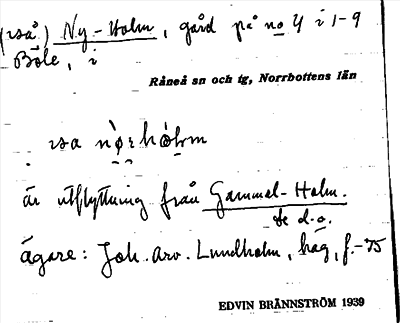 (rså) Ny-Holm, gård på no 4 i 1-9
Böle, i
Råneå sn och tg, Norrbottens län
rsa nỳ:hòlm
är utflyttning från Gammel-Holm.
se d.o.
ägare: Joh. Arv. Lundholm, häg, f.-75
EDVIN BRÄNNSTRÖM 1939